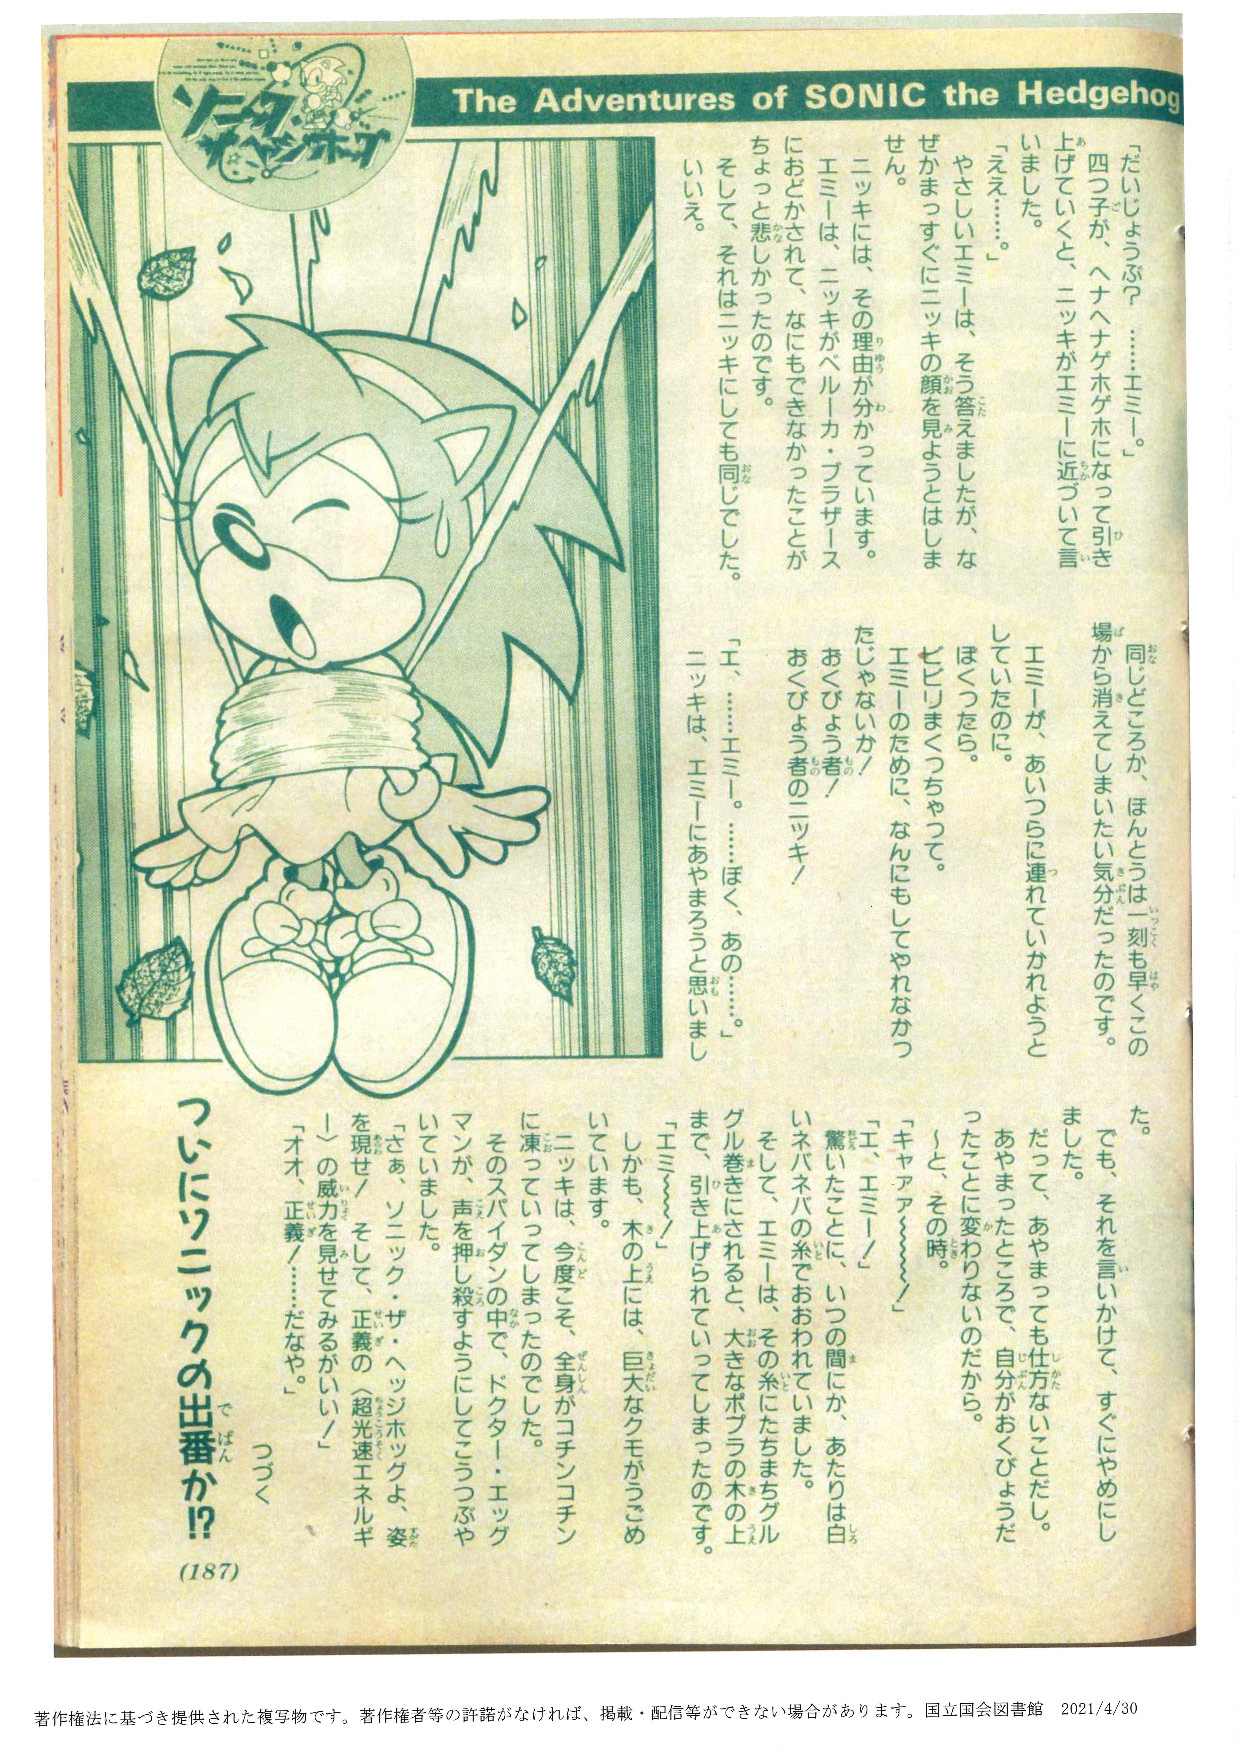 The Adventures of SONIC the Hedgehog
ソニック
ザ・ヘッジホッグ
「だいじょうぶ？　……エミー。」
　四つ子が、ヘナヘナゲホゲホになって引き
上げていくと、ニッキがエミーに近づいて言
いました。
「ええ……。」
　やさしいエミーは、そう答えましたが、な
ぜかまっすぐにニッキの顔を見ようとはしま
せん。
　ニッキには、その理由が分かっています。
　エミーは、ニッキがベルーカ・ブラザース
におどかされて、なにもできなかったことが
ちょっと悲しかったのです。
　そして、それはニッキにしても同じでした。
　いいえ。
　同じどころか、ほんとうは一刻も早くこの
場から消えてしまいたい気分だったのです。
　エミーが、あいつらに連れていかれようと
していたのに。
　ぼくったら。
　ビビりまくっちゃって。
　エミーのために、なんにもしてやれなかっ
たじゃないか！
　おくびょう者！
　おくびょう者のニッキ！
「エ、……エミー。……ぼく、あの……。」
　ニッキは、エミーにあやまろうと思いまし
た。
　でも、それを言いかけて、すぐにやめにし
ました。
　だって、あやまっても仕方ないことだし。
　あやまったところで、自分がおくびょうだ
ったことに変わりないのだから。
　〜と、その時。
「キャァァ〜〜〜〜！」
「エ、エミー！」
　驚いたことに、いつの間にか、あたりは白
いネバネバの糸でおおわれていました。
　そして、エミーは、その糸にたちまちグル
グル巻きにされると、大きなポプラの木の上
まで、引き上げられていってしまったのです。
「エミ〜〜〜！」
　しかも、木の上には、巨大なクモがうごめ
いています。
　ニッキは、今度こそ、全身がコチンコチン
に凍っていってしまったのでした。
　そのスパイダンの中で、ドクター・エッグ
マンが、声を押し殺すようにしてこうつぶや
いていました。
「さぁ、ソニック・ザ・ヘッジホッグよ、姿
を現せ！　そして、正義の〈超光速エネルギ
ー〉の威力を見せてみるがいい！」
「オオ、正義！……だなや。」
つづく
ついにソニックの出番か!?
(187)
著作権法に基づき提供された複写物です。著作権者等の許諾がなければ、掲載・配信等ができない場合があります。国立国会図書館　2021/4/30